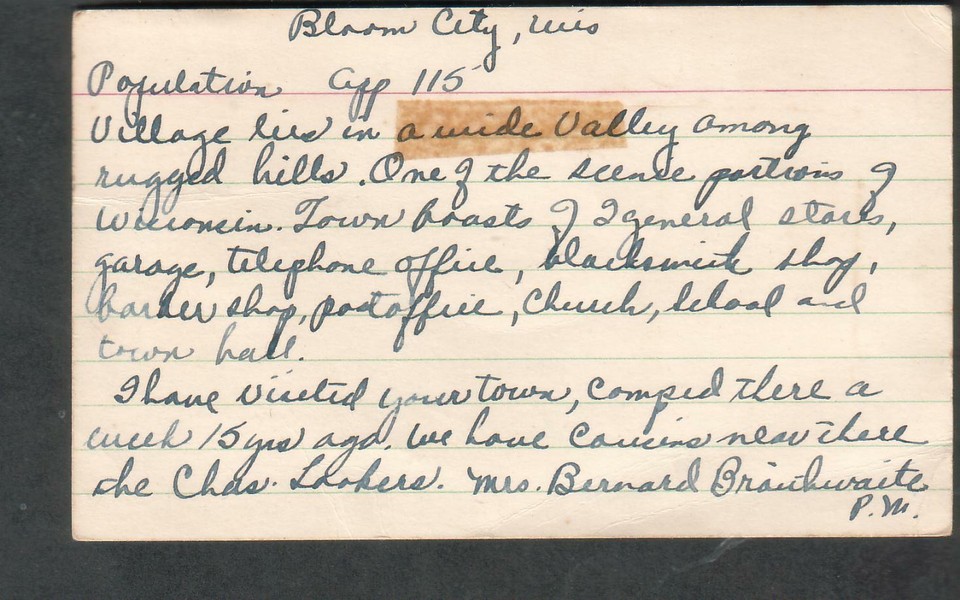 Bloom City, Wis
Population App 115
Village lies in a wide Valley among
rugged hills. One of the scenic portions of
Wisconsin. Town boasts of 2 general stores,
garage, telephone office, blacksmith shop,
barber shop, postoffice, Church, School and
town hall.
I have visited your town, camped there a
week 15 yrs ago. We have Cousins near there
the Chas. Lookers. Mrs. Bernard Braithwaite
P.M.